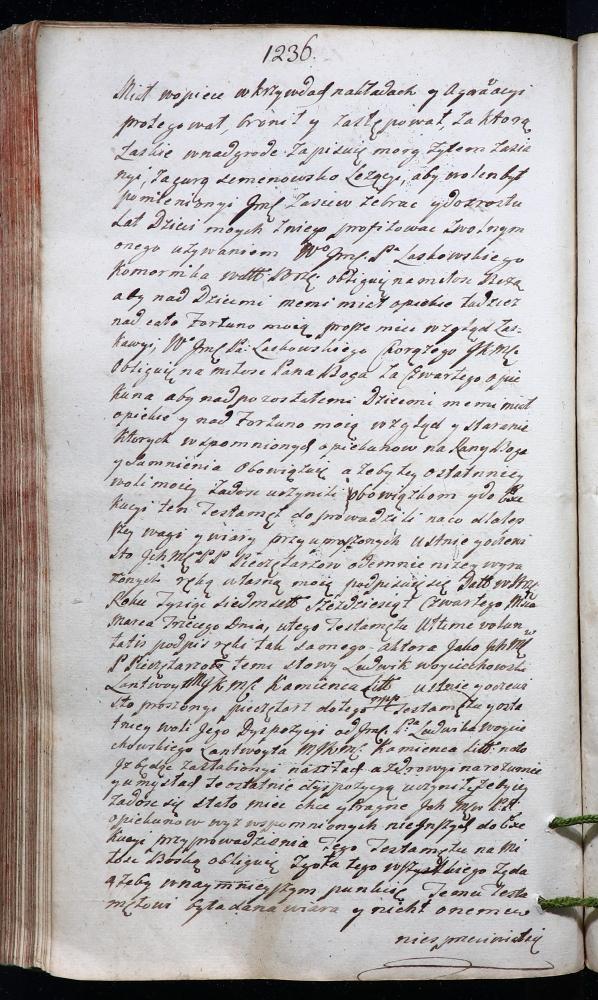 1236.
Miał w opiece w krzywdach nakładach y Agrawacyi
protegował, bronił y zastępował, za ktorą
łaskie w nadgrode zapisuię morg żytem zasia
nyi, za gurą Semenowsko Leżącyi, aby wolen był
pomienionyi Jmć zasiew zebrac y do zrostu
Lat Dzieci moych z niego profitowac zwolnym
onego używaniem Wo Jmć Pa Laskowskiego
Komornika Wdtt Brzć obliguię na miłosc Bozą
aby nad Dziecmi memi miał opiekie tudziez
nad cało Fortuno moią prosze miec wzgląd Łas-
kawyi; Wo Jmć Pa Laskowskiego Chorążego JKMć
Obliguię na miłosc Pana Boga za Czwartego opie
kuna aby nad pozostałemi Dziecmi memi miał
opiekie y nad Fortuno moią wzgląd y staranie
Ktorych wspomnionych opiekunow na Rany Boga
y Sumnienia Obowiązuię ażeby tey ostatnniey
woli moiey zadosc uczynili obowiązkom y do Exe
kucyi ten Testamęt doprowadzili na co dla lep
szey wagi y wiary przy uproszonych ustnie y oczewi
sto Ich Mć PP Pieczętarzow odemnie nizey wyra
zonych ręką własną moią podpisuię się Datt w Brzć
Roku Tysiąc siedmsett Szezdziesiąt Czwartego Msca
Marca Trzeciego Dnia, u tego Testamętu Ultime volun
tatis podpis ręki tak samego aktora Jako Ich Mć
P Pieczętarzow temi słowy Ludwik Woyciechowski
Lantwoyt MJKMć Kamienca Litt ustnie y oczewi
sto proszonyi pieczętarz do tego mpp Testamętu y osta
tniey woli Jego Dyspozycyi od Jmć Pa Ludwika Woycie
chowskiego Lantwoyta MJKMć Kamienca Litt: na to
Iz będąc zasłabionyi na ale zdrowyi na rozumie
y umysłach te ostatnie dyspozycyą uczynił, żeby iey
zadosc się stało miec chce y Pragne Ich Mciow PP
opiekunow wyz wspomnionych nie Inszych do Exe
kucyi przyprowadzenia Tego Testamętu na Mi
łosc Boską obliguię Zgoła tego wszystkiego żąda
ażeby w naymnieyszym punkcie Temu Testa
mętowi była dana wiara y nicht onemu
niesprzeciwiał się